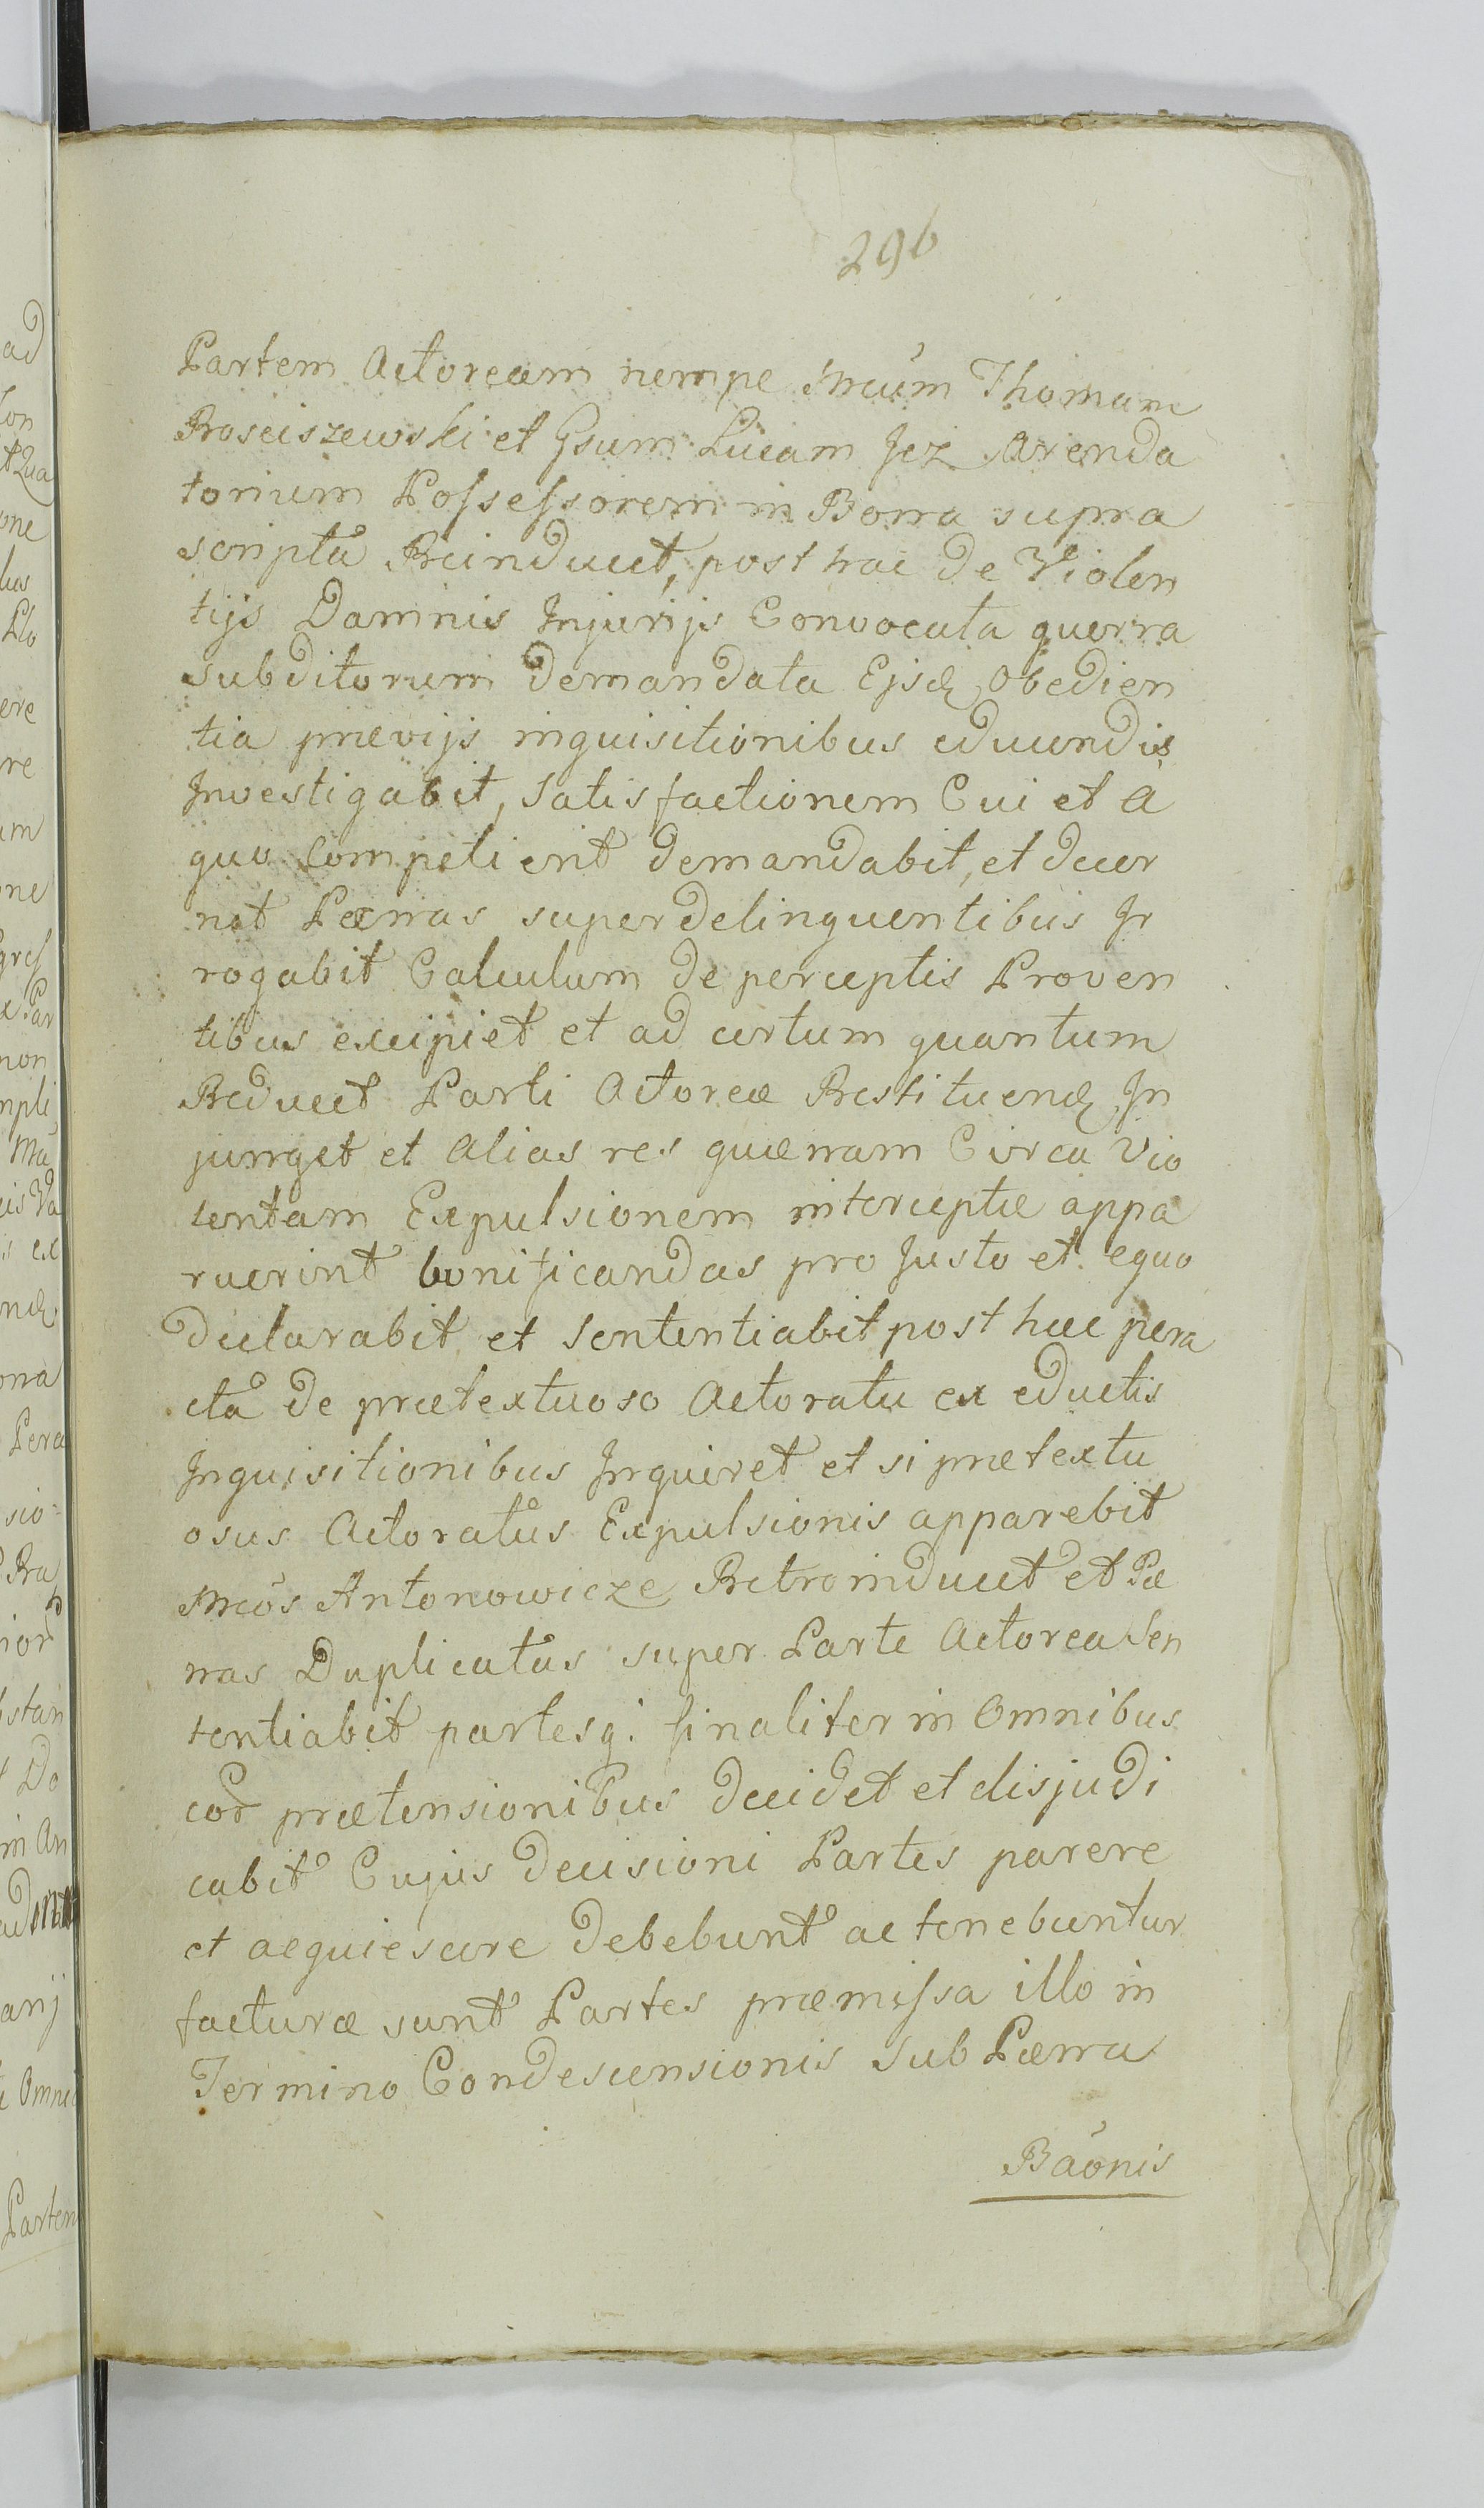 296
Partem Actoream nempe Mcum Thomam
Rosciszewski et Gsum Lucam Jez Arenda
torium Possessorem in Bona supra
scripta Reinducet, post hac de Violen
tijs Damnis Injurijs Convocata guerra
subditorum demandata Ejsd Obedien
tia prævijs inquisitionibus educendis
Investigabit, Satisfactionem Cui et a
quo competierit demandabit, et decer
net Pænas super delinquentibus Ir
rogabit Calculum de perceptis Proven
tibus excipiet et ad certum quantum
Reducet Parti Actoreæ Restituend In
junget et Alias res quænam Circa Vio
lentam Expulsionem interceptæ appa
ruerint bonificandas pro Justo et equo
declarabit et Sententiabit post hæc pera
cta de prætextuoso Actoratu ex eductis
Inquisitionibus Inquiret et si prætextu
osus Actoratus Expulsionis apparebit
Mcos Antonowicze Retroinducet et Pæ
nas Duplicatas super Parte Actorea Sen
tentiabit partesq: finaliter in Omnibus
eor prætensionibus decidet et disjudi
cabit Cujus decisioni Partes parere
et acquiescere debebunt ac tenebuntur
facturæ sunt Partes præmissa illo in
Termino Condescensionis sub Pæna
Baonis